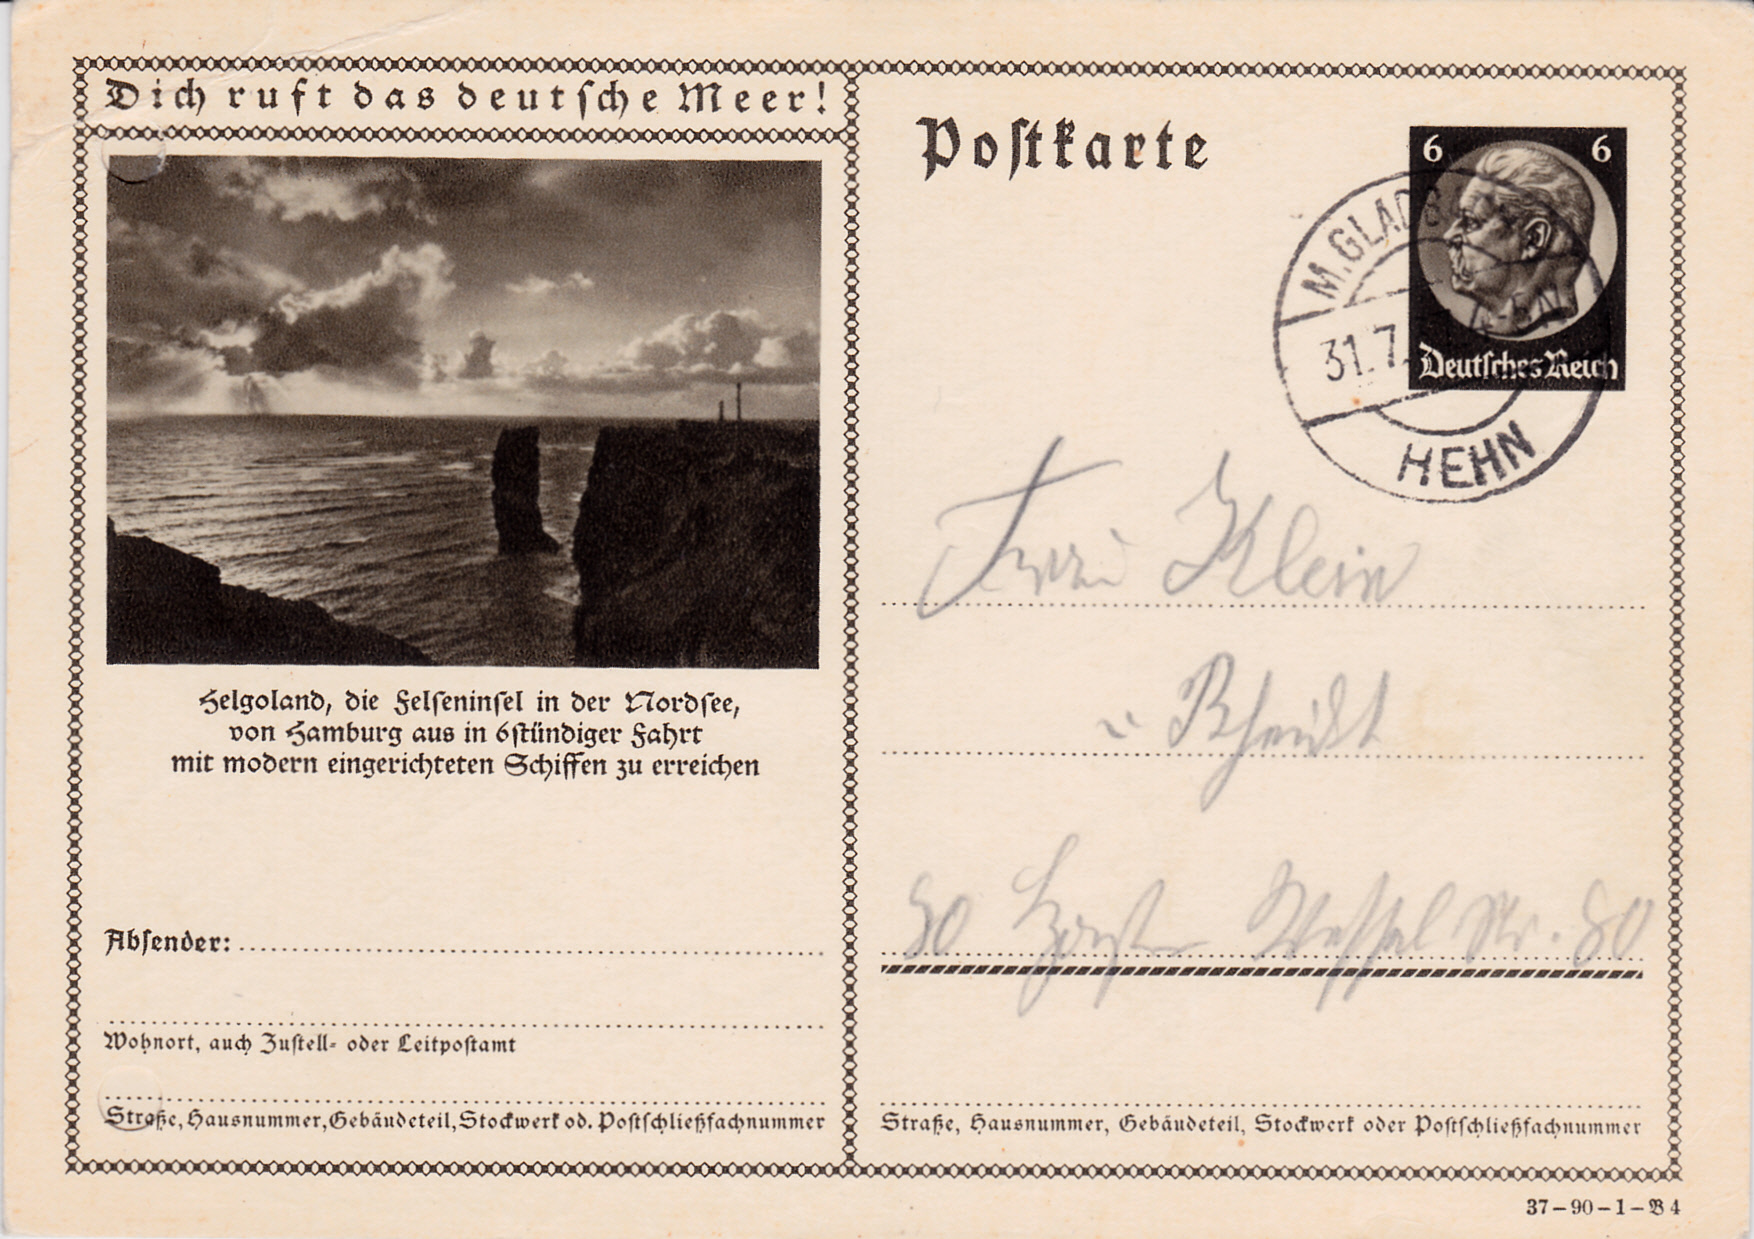 Dich ruft das deutsche Meer!
Helgoland, die Felseninsel in der Nordsee,
von Hamburg aus in 6stündiger Fahrt
mit modern eingerichteten Schiffen zu erreichen
Absender:
Wohnort, auch Zustell- oder Leitpostamt
Straße, Hausnummer, Gebäudeteil, Stockwerk od. Postschließfachnummer
Postkarte
6 6
Deutsches Reich
M.GLADB
31.7.
HEHN
Frau Klein
Rheydt
80 Horst Wessel Str. 80
Straße, Hausnummer, Gebäudeteil, Stockwerk oder Postschließfachnummer
37-90-1-B 4